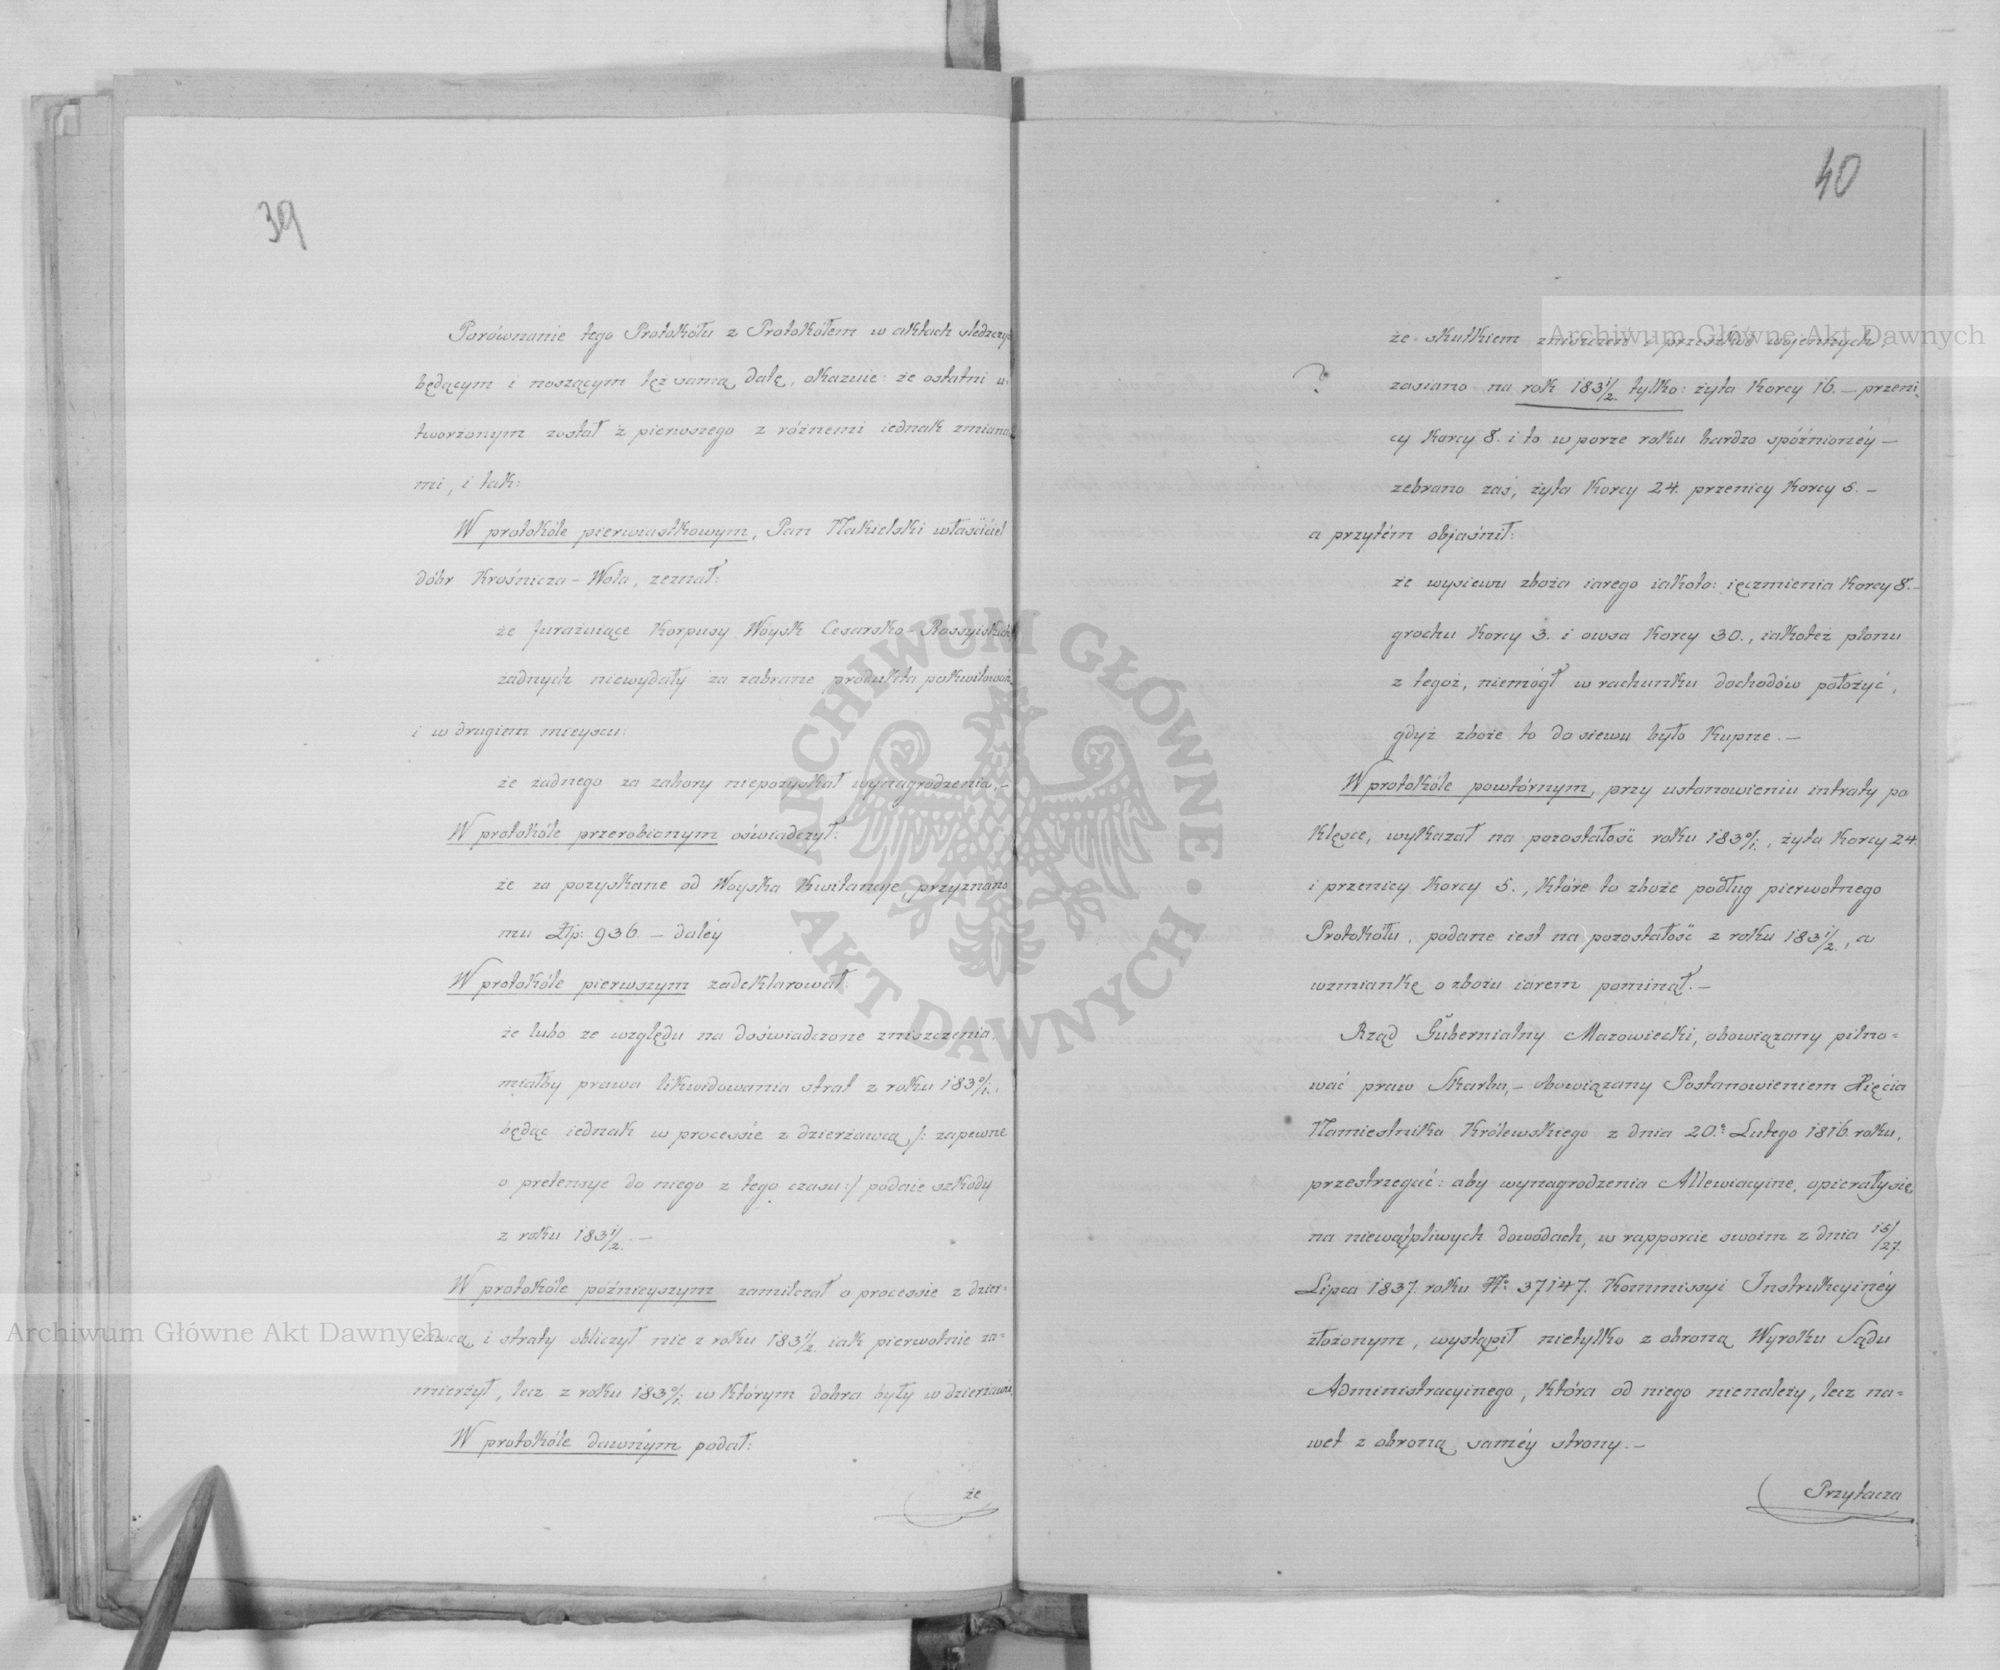 39
Porównanie tego Protokółu z Protokółem w aktach śledczych
będącym i noszącym też samą datę, okazuie: że ostatni u-
tworzonym został z pierwszego z różnemi iednak zmiana-
mi, i tak:
W protokóle pierwiastkowym, Pan Nakielski właściciel
dóbr Krośnicza-Wola, zeznał:
że furażuiące Korpusy Woysk Cesarsko-Rossyiskich
żadnych niewydały za zabrane produkta pokwitowań,
i w drugiem mieyscu:
że żadnego za zabory niepozyskał wynagrodzenia.-
W protokóle przerobionym oświadczył:
że za pozyskane od Woyska Kwitancye, przyznano
mu Złp: 936. – daléy
W protokóle pierwszym zadeklarował:
że lubo ze względu na doświadczone zniszczenia
miałby prawa likwidowania strat z roku 1830/1.,
będąc iednak w processie z dzierżawcą /: zapewne
o pretensye do niego z tego czasu :/ podaie szkody
z roku 1831/2. –
W protokóle późnieyszym zamilczał o processie z dzier-
żawcą, i straty obliczył nie z roku 1831/2. iak pierwotnie za-
mierzył, lecz z roku 1830/1. w którym dobra były w dzierżawie.
W protokóle dawnym podał:
że
40
że skutkiem zniszczeń i przeszkód wojennych,
? zasiano na rok 1831/2. tylko: żyta Korcy 16. – przeni-
cy Korcy 8. i to w porze roku bardzo spóźnionéy –
zebrano zaś, żyta Korcy 24. przenicy Korcy 5. –
a przytém objaśnił:
że wysiewu zboża iarego iakoto: ięczmienia Korcy 8. –
grochu Korcy 3. i owsa Korcy 30., iakoteż plonu
z tegoż, niemógł w rachunku dochodów położyć,
gdyż zboże to do siewu było Kupne. –
W protokóle powtórnym, przy ustanowieniu intraty po
Klęsce, wykazał na pozostałość roku 1830/1., żyta Korcy 24.
i przenicy Korcy 5., które to zboże podług pierwotnego
Protokółu, podane iest na pozostałość z roku 1831/2., a
wzmiankę o zbożu iarem pominął. –
Rząd Gubernialny Mazowiecki, obowiązany pilno-
wać praw Skarbu, – obowiązany Postanowieniem Xięcia
Namiestnika Królewskiego z dnia 20.º Lutego 1816. roku,
przestrzegać: aby wynagrodzenia Allewiacyine, opierały się
na niewątpliwych dowodach, w rapporcie swoim z dnia 15/27.
Lipca 1837. roku Nº 37147. Kommissyi Instrukcyinéy
złożonym, wystąpił nietylko z obroną Wyroku Sądu
Administracyinego, która od niego nienależy, lecz na-
wet z obroną saméy strony. –
Przytacza
Archiwum Główne Akt Dawnych
Archiwum Główne Akt Dawnych
ARCHIWUM GŁÓWNE • AKT DAWNYCH •